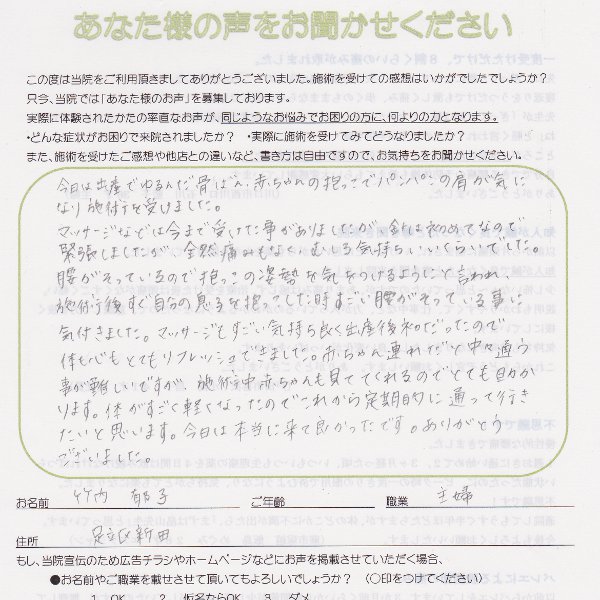 あなた様の声をお聞かせください
この度は当院をご利用頂きましてありがとうございました。施術を受けての感想はいかがでしたでしょうか?
只今、当院では「あなた様のお声」を募集しております。
実際に体験されたかたの率直なお声が、同じようなお悩みでお困りの方に、何よりの力となります。
・どんな症状がお困りで来院されましたか? ・実際に施術を受けてみてどうなりましたか?
また、施術を受けたご感想や他店との違いなど、書き方は自由ですので、お気持ちをお聞かせください。
今日は出産でゆるんだ骨ばん、赤ちゃんの抱っこでパンパンの肩が気に
なり施術を受けました。
マッサージなどは今まで受けた事がありましたが、針は初めてなので
緊張しましたが、全然痛みもなく、むしろ気持ちいいくらいでした。
腰がそっているので抱っこの姿勢を気をつけるようにと言われ、
施術後すぐ自分の息子を抱っこした時すごい腰がそっている事に
気付きました。マッサージもすごい気持ち良く出産後初だったので
体も心もとてもリフレッシュできました。赤ちゃん連れだと中々通う
事が難しいですが、施術中赤ちゃんも見ててくれるのでとても助か
ります。体がすごく軽くなったのでこれから定期的に通って行き
たいと思います。今日は本当に来て良かったです。ありがとう
ございました。
お名前 竹内 郁子 ご年齢 職業 主婦
住所 足立区新田
もし、当院宣伝のため広告チラシやホームページなどにお声を掲載させていただく場合、
●お名前やご職業を載せさせて頂いてもよろしいでしょうか? (○印をつけてください)
1 OK 2 仮名ならOK 3 ダメ